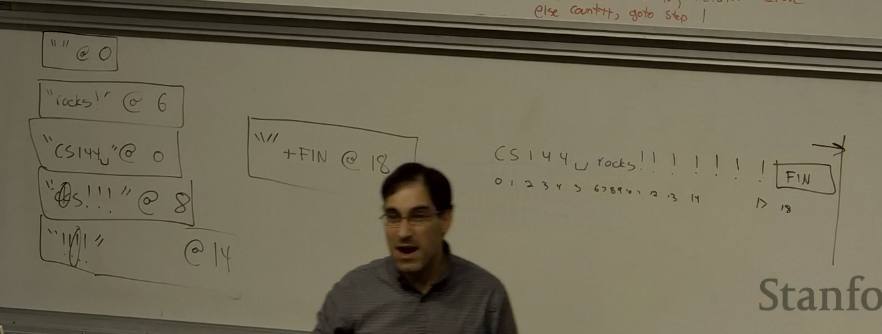 else count++, goto step 1
"" @ 0
"rocks!" @ 6
"CS144␣" @ 0
s!!!" @ 8
"!!!!" @ 14
"" +FIN @ 18
CS144␣rocks!!!!!!!! FIN
0 1 2 3 4 5 6 7 8 9 0 1 2 13 14 17 18
Stanfo